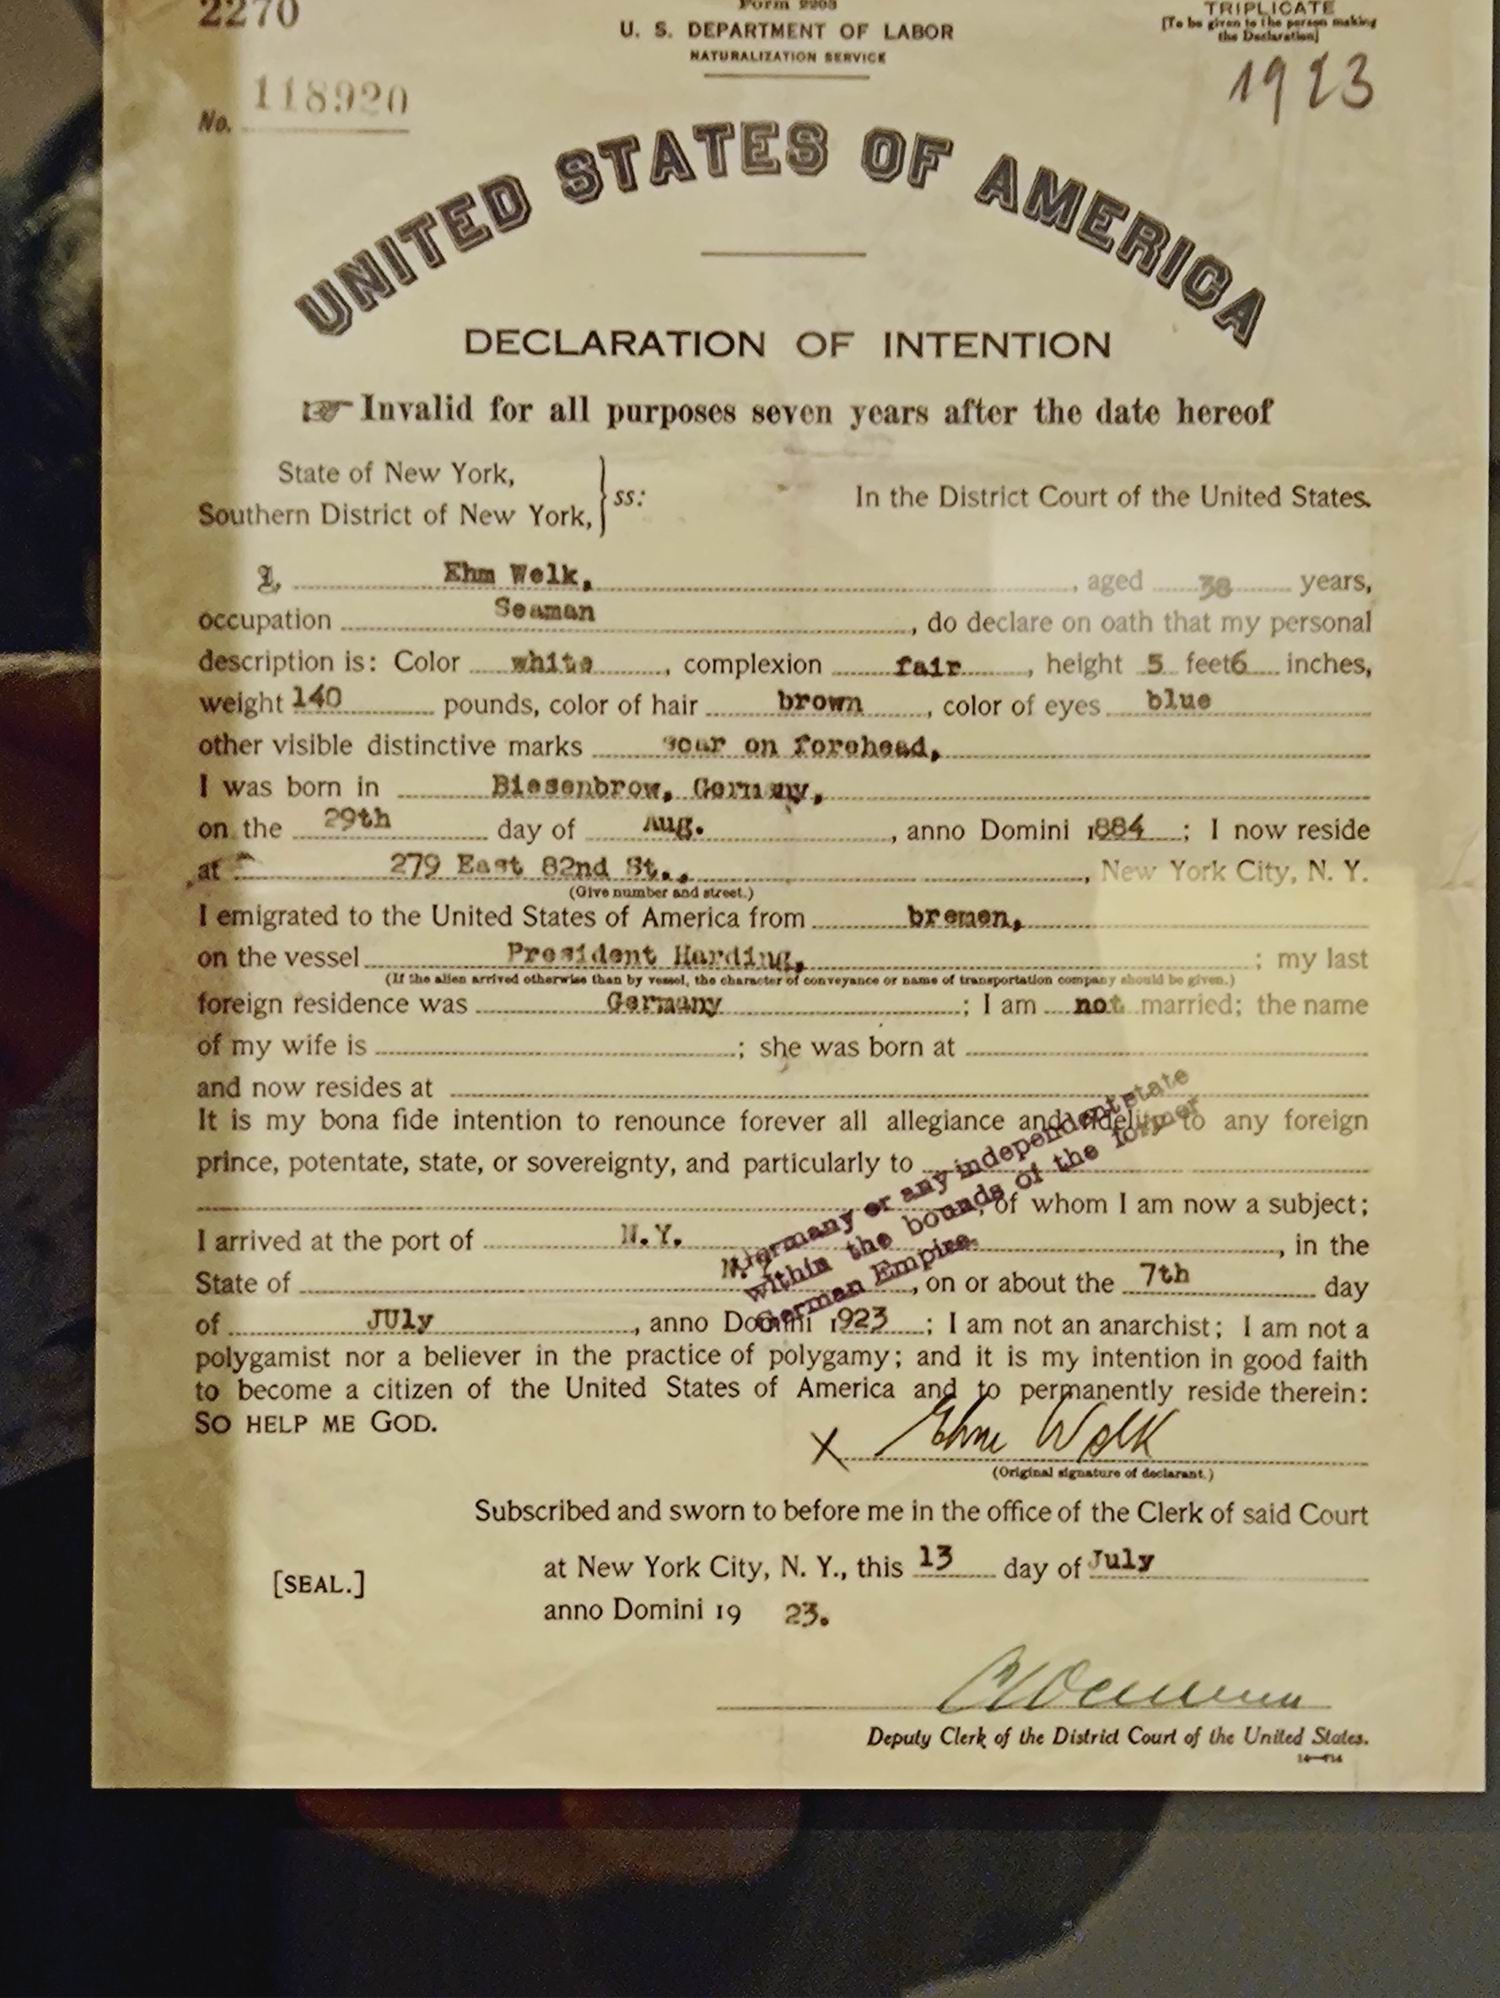 2270
Form 2203
U. S. DEPARTMENT OF LABOR
NATURALIZATION SERVICE
TRIPLICATE
[To be given to the person making
the Declaration]
No. 118920
1923
UNITED STATES OF AMERICA
DECLARATION OF INTENTION
☞ Invalid for all purposes seven years after the date hereof
State of New York,
Southern District of New York, } ss:
In the District Court of the United States.
I, Ehm Welk, , aged 38 years,
occupation Seaman , do declare on oath that my personal
description is: Color white , complexion fair , height 5 feet 6 inches,
weight 140 pounds, color of hair brown , color of eyes blue
other visible distinctive marks scar on forehead,
I was born in Biesenbrow, Germany,
on the 29th day of Aug. , anno Domini 1884 ; I now reside
at 279 East 82nd St., , New York City, N. Y.
(Give number and street.)
I emigrated to the United States of America from bremen,
on the vessel President Harding, ; my last
(If the alien arrived otherwise than by vessel, the character of conveyance or name of transportation company should be given.)
foreign residence was Germany ; I am not married; the name
of my wife is ; she was born at
and now resides at
It is my bona fide intention to renounce forever all allegiance and fidelity to any foreign
prince, potentate, state, or sovereignty, and particularly to
Germany or any independent state
within the bounds of the former
German Empire.
, of whom I am now a subject;
I arrived at the port of N.Y. , in the
State of , on or about the 7th day
of JUly , anno Domini 1923 ; I am not an anarchist; I am not a
polygamist nor a believer in the practice of polygamy; and it is my intention in good faith
to become a citizen of the United States of America and to permanently reside therein:
SO HELP ME GOD.
X Ehm Welk
(Original signature of declarant.)
Subscribed and sworn to before me in the office of the Clerk of said Court
at New York City, N. Y., this 13 day of July
[SEAL.]
anno Domini 19 23.
Deputy Clerk of the District Court of the United States.